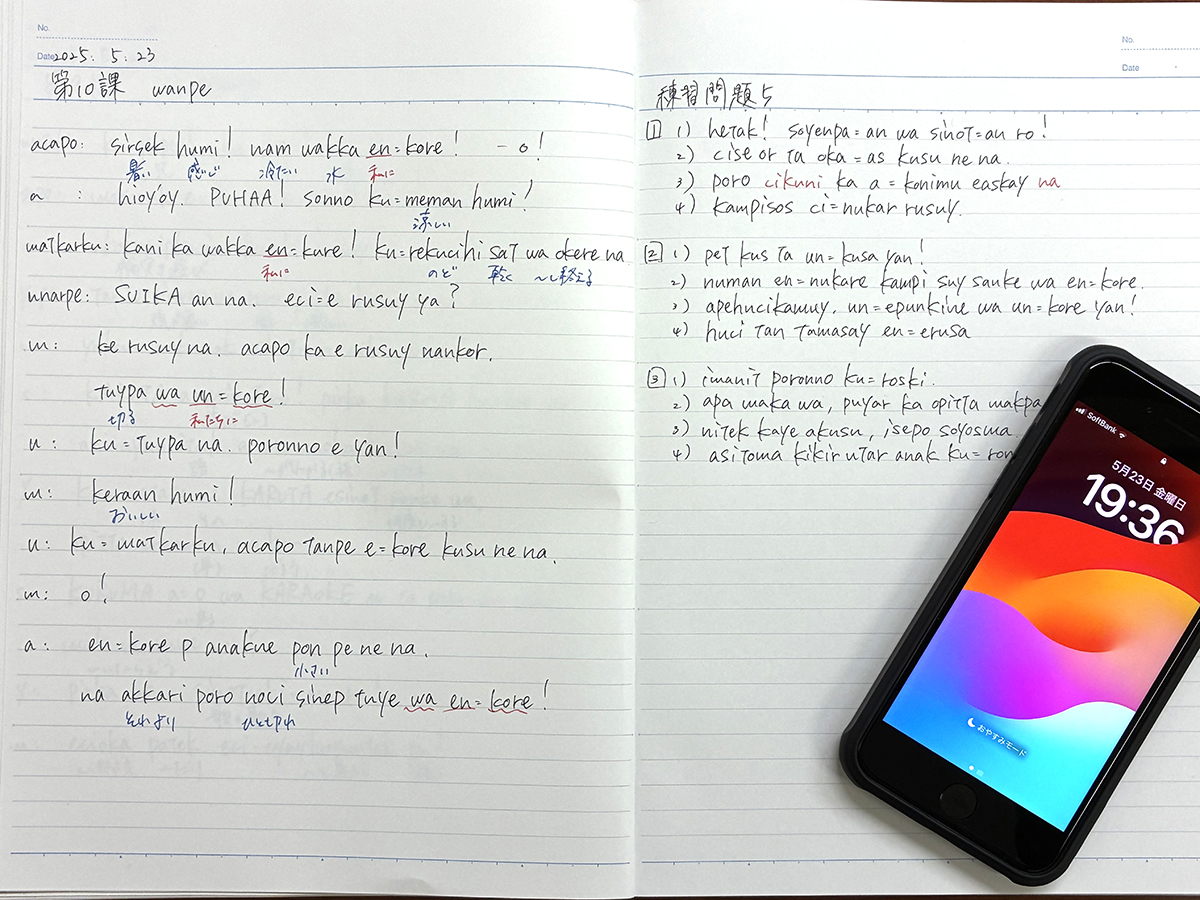 No.
Date 2025. 5. 23
第10課 wanpe
acapo: sirsek humi! nam wakka en=kore! -o!
暑い 感じ 冷たい 水 私に
a: hioy'oy. PUHAA! sonno ku=meman humi!
涼しい
matkarku: kani ka wakka en=kure! ku=rekucihi sat wa okere na
私に のど 乾く ~し終える
unarpe: SUIKA an na. eci=e rusuy ya?
m: ke rusuy na. acapo ka e rusuy nankor.
tuypa wa un=kore!
切る 私たちに
u: ku=tuypa na. poronno e yan!
m: keraan humi!
おいしい
u: ku=matkarku, acapo tanpe e=kore kusu ne na.
m: o!
a: en=kore p anakne pon pe ne na.
小さい
na akkari poro noci sinep tuye wa en=kore!
それより ひときれ
No.
Date
練習問題5
1 1) hetak! soyenpa=an wa sinot=an ro!
2) cise or ta oka=as kusu ne na.
3) poro cikuni ka a=konimu easkay na
4) kampisos ci=nukar rusuy.
2 1) pet kus ta un=kusa yan!
2) numan en=nukare kampi suy sanke wa en=kore.
3) apehucikamuy, un=epunkine wa un=kore yan!
4) huci tan tamasay en=erusa
3 1) imanit poronno ku=roski.
2) apa maka wa, puyar ka opitta makpa
3) nitek kaye akusu, isepo soyosma.
4) asitoma kikir utar anak ku=ron
SoftBank
5月23日 金曜日
19:36
おやすみモード